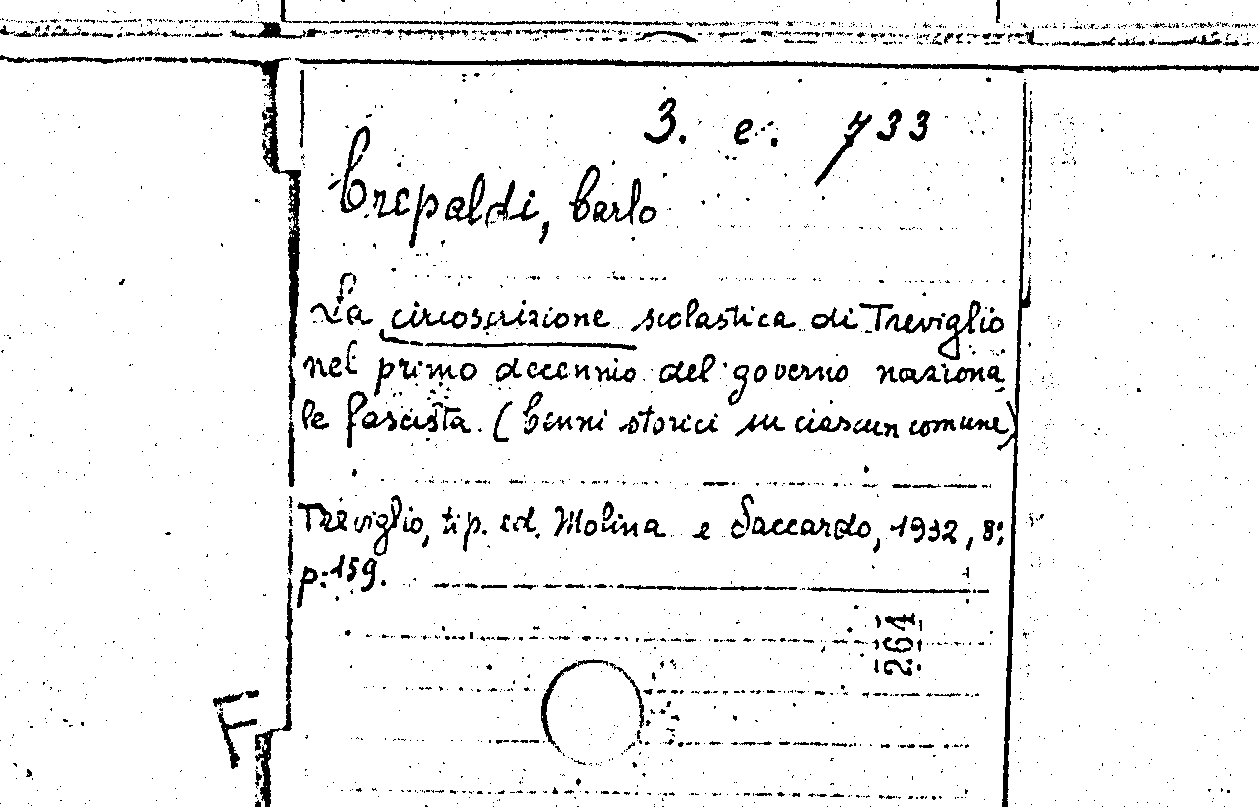 3. e. 733
Crepaldi, Carlo
La circoscrizione scolastica di Treviglio
nel primo decennio del governo naziona
le fascista. (Cenni storici su ciascun comune)
Treviglio, tip. ed. Molina e Saccardo, 1932, 8°,
p. 159.
264
F